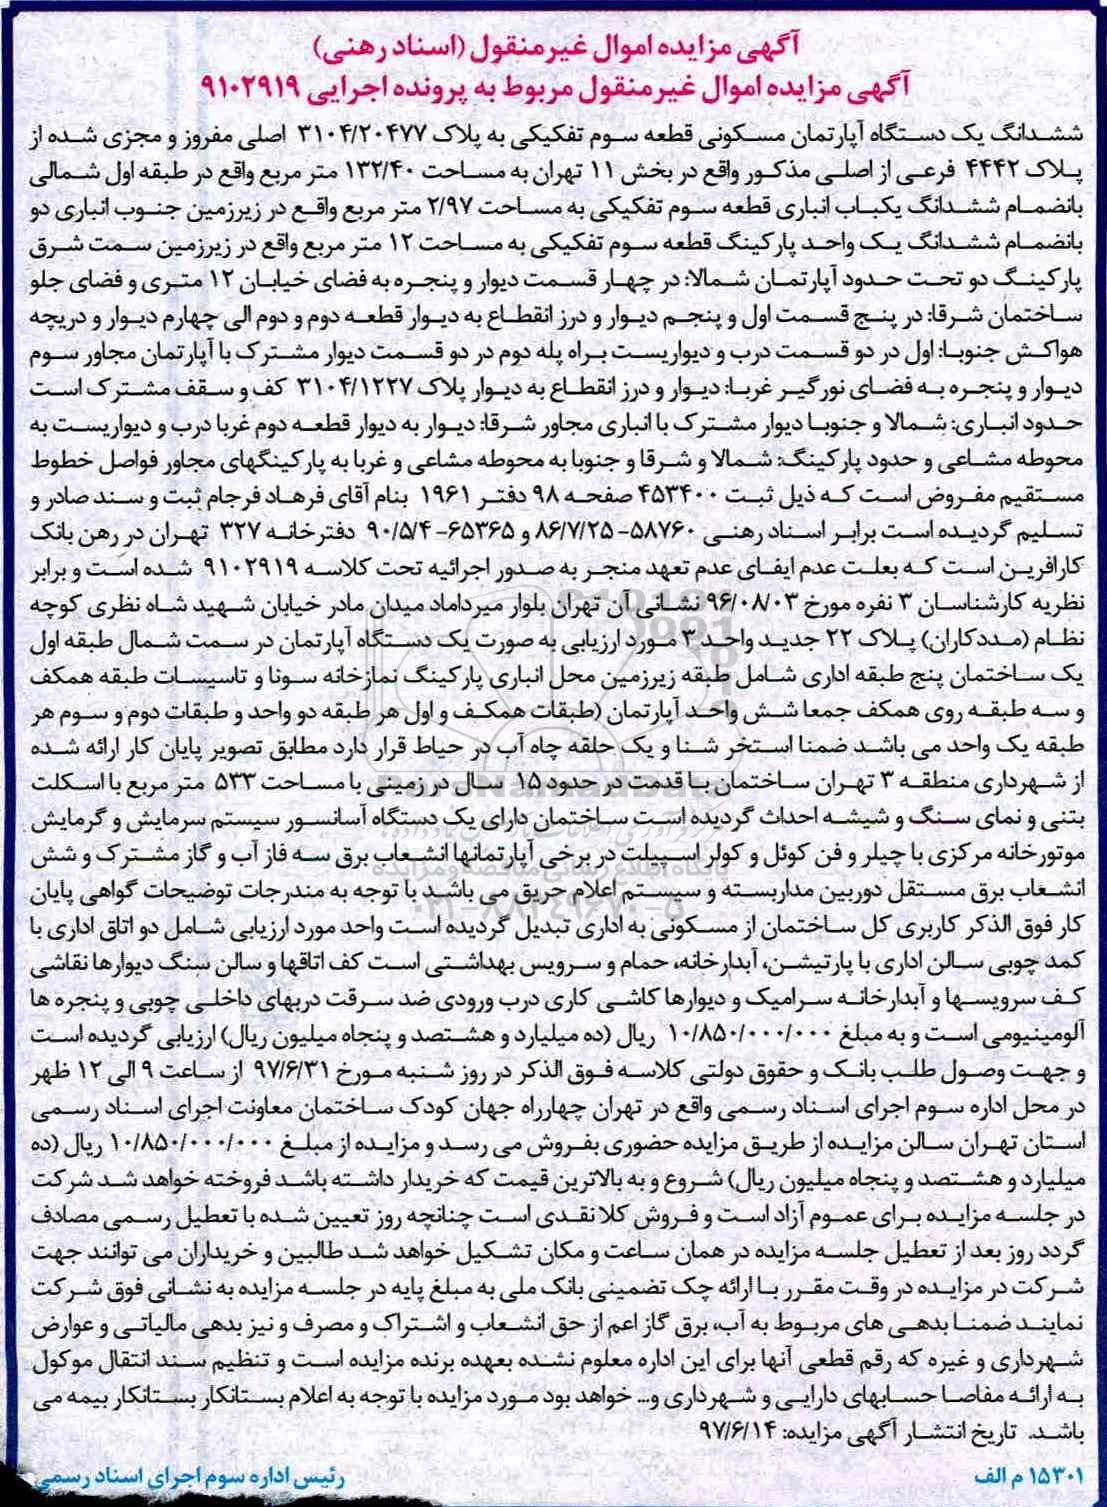 آگهی مزایده اموال غیرمنقول (اسناد رهنی)
آگهی مزایده اموال غیرمنقول مربوط به پرونده اجرایی ۹۱۰۲۹۱۹
ششدانگ یک دستگاه آپارتمان مسکونی قطعه سوم تفکیکی به پلاک ۳۱۰۴/۲۰۴۷۷ اصلی مفروز و مجزی شده از
پلاک ۴۴۴۲ فرعی از اصلی مذکور واقع در بخش ۱۱ تهران به مساحت ۱۳۲/۴۰ متر مربع واقع در طبقه اول شمالی
بانضمام ششدانگ یکباب انباری قطعه سوم تفکیکی به مساحت ۲/۹۷ متر مربع واقع در زیرزمین جنوب انباری دو
بانضمام ششدانگ یک واحد پارکینگ قطعه سوم تفکیکی به مساحت ۱۲ متر مربع واقع در زیرزمین سمت شرق
پارکینگ دو تحت حدود آپارتمان شمالا: در چهار قسمت دیوار و پنجره به فضای خیابان ۱۲ متری و فضای جلو
ساختمان شرقا: در پنج قسمت اول و پنجم دیوار و درز انقطاع به دیوار قطعه دوم و دوم الی چهارم دیوار و دریچه
هواکش جنوبا: اول در دو قسمت درب و دیواریست براه پله دوم در دو قسمت دیوار مشترک با آپارتمان مجاور سوم
دیوار و پنجره به فضای نورگیر غربا: دیوار و درز انقطاع به دیوار پلاک ۳۱۰۴/۱۲۲۷ کف و سقف مشترک است
حدود انباری: شمالا و جنوبا دیوار مشترک با انباری مجاور شرقا: دیوار به دیوار قطعه دوم غربا درب و دیواریست به
محوطه مشاعی و حدود پارکینگ: شمالا و شرقا و جنوبا به محوطه مشاعی و غربا به پارکینگهای مجاور فواصل خطوط
مستقیم مفروض است که ذیل ثبت ۴۵۳۴۰۰ صفحه ۹۸ دفتر ۱۹۶۱ بنام آقای فرهاد فرجام ثبت و سند صادر و
تسلیم گردیده است برابر اسناد رهنی ۵۸۷۶۰-۸۶/۷/۲۵ و ۶۵۳۶۵-۹۰/۵/۴ دفترخانه ۳۲۷ تهران در رهن بانک
کارافرین است که بعلت عدم ایفای عدم تعهد منجر به صدور اجرائیه تحت کلاسه ۹۱۰۲۹۱۹ شده است و برابر
نظریه کارشناسان ۳ نفره مورخ ۹۶/۰۸/۰۳ نشانی آن تهران بلوار میرداماد میدان مادر خیابان شهید شاه نظری کوچه
نظام (مددکاران) پلاک ۲۲ جدید واحد ۳ مورد ارزیابی به صورت یک دستگاه آپارتمان در سمت شمال طبقه اول
یک ساختمان پنج طبقه اداری شامل طبقه زیرزمین محل انباری پارکینگ نمازخانه سونا و تاسیسات طبقه همکف
و سه طبقه روی همکف جمعا شش واحد آپارتمان (طبقات همکف و اول هر طبقه دو واحد و طبقات دوم و سوم هر
طبقه یک واحد می باشد ضمنا استخر شنا و یک حلقه چاه آب در حیاط قرار دارد مطابق تصویر پایان کار ارائه شده
از شهرداری منطقه ۳ تهران ساختمان با قدمت در حدود ۱۵ سال در زمینی با مساحت ۵۳۳ متر مربع با اسکلت
بتنی و نمای سنگ و شیشه احداث گردیده است ساختمان دارای یک دستگاه آسانسور سیستم سرمایش و گرمایش
موتورخانه مرکزی با چیلر و فن کوئل و کولر اسپیلت در برخی آپارتمانها انشعاب برق سه فاز آب و گاز مشترک و شش
انشعاب برق مستقل دوربین مداربسته و سیستم اعلام حریق می باشد با توجه به مندرجات توضیحات گواهی پایان
کار فوق الذکر کاربری کل ساختمان از مسکونی به اداری تبدیل گردیده است واحد مورد ارزیابی شامل دو اتاق اداری با
کمد چوبی سالن اداری با پارتیشن، آبدارخانه، حمام و سرویس بهداشتی است کف اتاقها و سالن سنگ دیوارها نقاشی
کف سرویسها و آبدارخانه سرامیک و دیوارها کاشی کاری درب ورودی ضد سرقت دربهای داخلی چوبی و پنجره ها
آلومینیومی است و به مبلغ ۱۰/۸۵۰/۰۰۰/۰۰۰ ریال (ده میلیارد و هشتصد و پنجاه میلیون ریال) ارزیابی گردیده است
و جهت وصول طلب بانک و حقوق دولتی کلاسه فوق الذکر در روز شنبه مورخ ۹۷/۶/۳۱ از ساعت ۹ الی ۱۲ ظهر
در محل اداره سوم اجرای اسناد رسمی واقع در تهران چهارراه جهان کودک ساختمان معاونت اجرای اسناد رسمی
استان تهران سالن مزایده از طریق مزایده حضوری بفروش می رسد و مزایده از مبلغ ۱۰/۸۵۰/۰۰۰/۰۰۰ ریال (ده
میلیارد و هشتصد و پنجاه میلیون ریال) شروع و به بالاترین قیمت که خریدار داشته باشد فروخته خواهد شد شرکت
در جلسه مزایده برای عموم آزاد است و فروش کلا نقدی است چنانچه روز تعیین شده با تعطیل رسمی مصادف
گردد روز بعد از تعطیل جلسه مزایده در همان ساعت و مکان تشکیل خواهد شد طالبین و خریداران می توانند جهت
شرکت در مزایده در وقت مقرر با ارائه چک تضمینی بانک ملی به مبلغ پایه در جلسه مزایده به نشانی فوق شرکت
نمایند ضمنا بدهی های مربوط به آب، برق گاز اعم از حق انشعاب و اشتراک و مصرف و نیز بدهی مالیاتی و عوارض
شهرداری و غیره که رقم قطعی آنها برای این اداره معلوم نشده بعهده برنده مزایده است و تنظیم سند انتقال موکول
به ارائه مفاصا حسابهای دارایی و شهرداری و... خواهد بود مورد مزایده با توجه به اعلام بستانکار بستانکار بیمه می
باشد. تاریخ انتشار آگهی مزایده: ۹۷/۶/۱۴
۱۵۳۰۱ م الف
رئیس اداره سوم اجرای اسناد رسمی
ParsNamadData
پایگاه اطلاع رسانی مناقصه و مزایده
۰۲۱-۸۸۳۴۹۶۷۰-۵